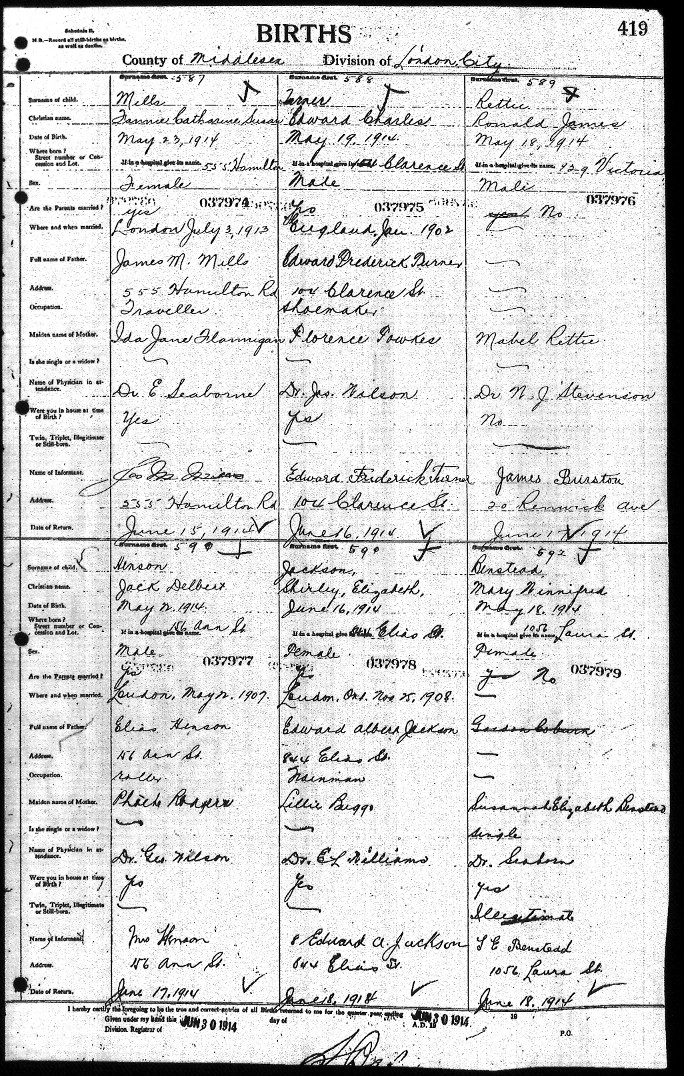 Schedule B.
N.B.—Record all still-births as births, as well as deaths.
BIRTHS
419
County of Middlesex Division of London City
Surname first. 587 Surname first. 588 Surname first. 589
Surname of child. Mills Turner Rettie
Christian name. Catharine Susan Edward Charles Ronald James
Date of Birth. May 23, 1914 May 19, 1914 May 18, 1914
Where born? Street number or Concession and Lot. If in a hospital give its name. 555 Hamilton If in a hospital give its name. 104 Clarence St If in a hospital give its name. 929 Victoria
Sex. Female Male Male
037974 037975 037976
Are the Parents married? yes yes No
Where and when married. London July 3, 1913 England, Jan. 1902
Full name of Father. James M. Mills Edward Frederick Turner
Address. 555 Hamilton Rd 104 Clarence St
Occupation. Traveller Shoemaker
Maiden name of Mother. Ida Jane Flannigan Florence Fowkes Mabel Rettie
Is she single or a widow?
Name of Physician in attendance. Dr. E. Seaborne Dr. Jos. Wilson Dr N. J. Stevenson
Were you in house at time of Birth? Yes yes No
Twin, Triplet, Illegitimate or Still-born.
Name of Informant. Edward Frederick Turner James Burston
Address. 555 Hamilton Rd 104 Clarence St. 20 Renwick Ave
Date of Return. June 15, 1914 June 16, 1914 June 17 1914
Surname first. 590 Surname first. Surname first. 592
Surname of child. Henson Jackson, Benstead,
Christian name. Jack Delbert Shirley, Elizabeth, Mary Winnifred
Date of Birth. May 2, 1914. June 16, 1914 May 18, 1914
Where born? Street number or Concession and Lot. If in a hospital give its name. 156 Ann St If in a hospital give its name. 844 Elias St. If in a hospital give its name. 1056 Laura St.
Sex. Male Female Female
037977 037978 037979
Are the Parents married? yes yes No
Where and when married. London, May 2, 1907. London, Ont. Nov 25, 1908.
Full name of Father. Elias Henson Edward Albert Jackson Gordon Coburn
Address. 156 Ann St. 844 Elias St.
Occupation. Trainman
Maiden name of Mother. Phoebe Rodgers Lillie Beggs Susannah Elizabeth Benstead
Is she single or a widow? single
Name of Physician in attendance. Dr. Geo Wilson Dr. E L Williams Dr. Seaborn
Were you in house at time of Birth? yes Yes yes
Twin, Triplet, Illegitimate or Still-born. Illegitimate
Name of Informant. Mrs Henson Edward A. Jackson S E Benstead
Address. 156 Ann St. 844 Elias St. 1056 Laura St.
Date of Return. June 17, 1914 June 18, 1914 June 18, 1914
I hereby certify the foregoing to be the true and correct entries of all Births returned to me for the quarter year ending JUN 30 1914
Given under my hand this JUN 30 1914 day of A.D. 19 19
Division Registrar of P.O.